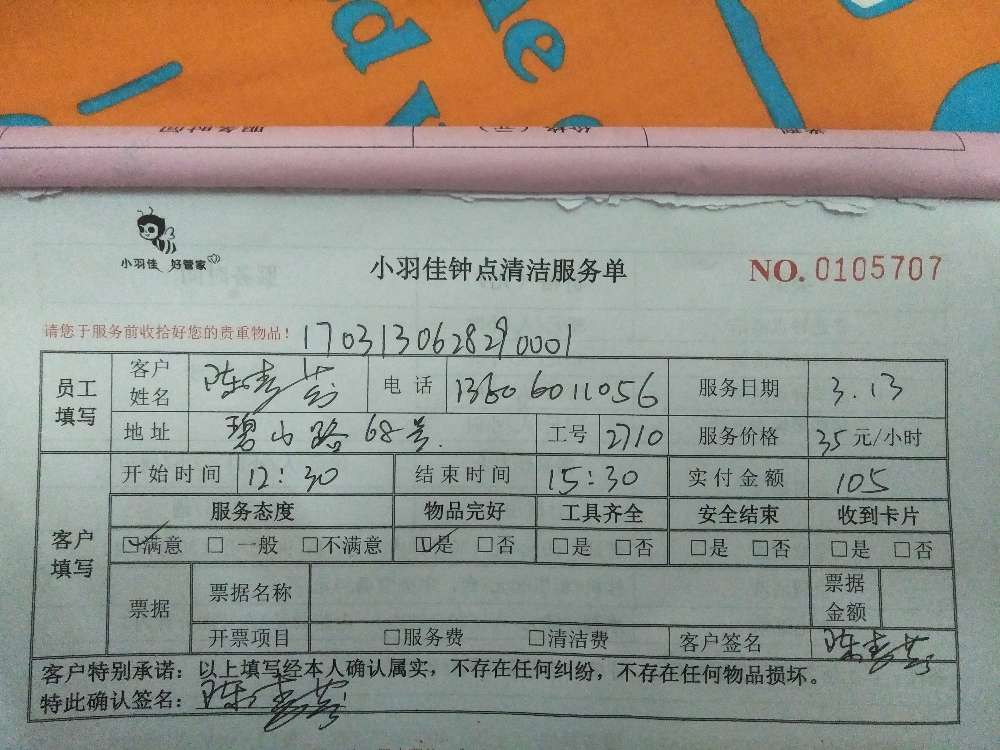 de
服务时间 价格(元)
小羽佳 好管家
小羽佳钟点清洁服务单 NO. 0105707
请您于服务前收拾好您的贵重物品! 1703130628290001
员工填写 客户姓名 电话 13606011056 服务日期 3.13
地址 碧山路68号. 工号 2710 服务价格 35元/小时
客户填写 开始时间 12:30 结束时间 15:30 实付金额 105
服务态度 物品完好 工具齐全 安全结束 收到卡片
☑满意 □一般 □不满意 ☑是 □否 □是 □否 □是 □否 □是 □否
票据 票据名称 票据金额
开票项目 □服务费 □清洁费 客户签名
客户特别承诺：以上填写经本人确认属实，不存在任何纠纷，不存在任何物品损坏。
特此确认签名：